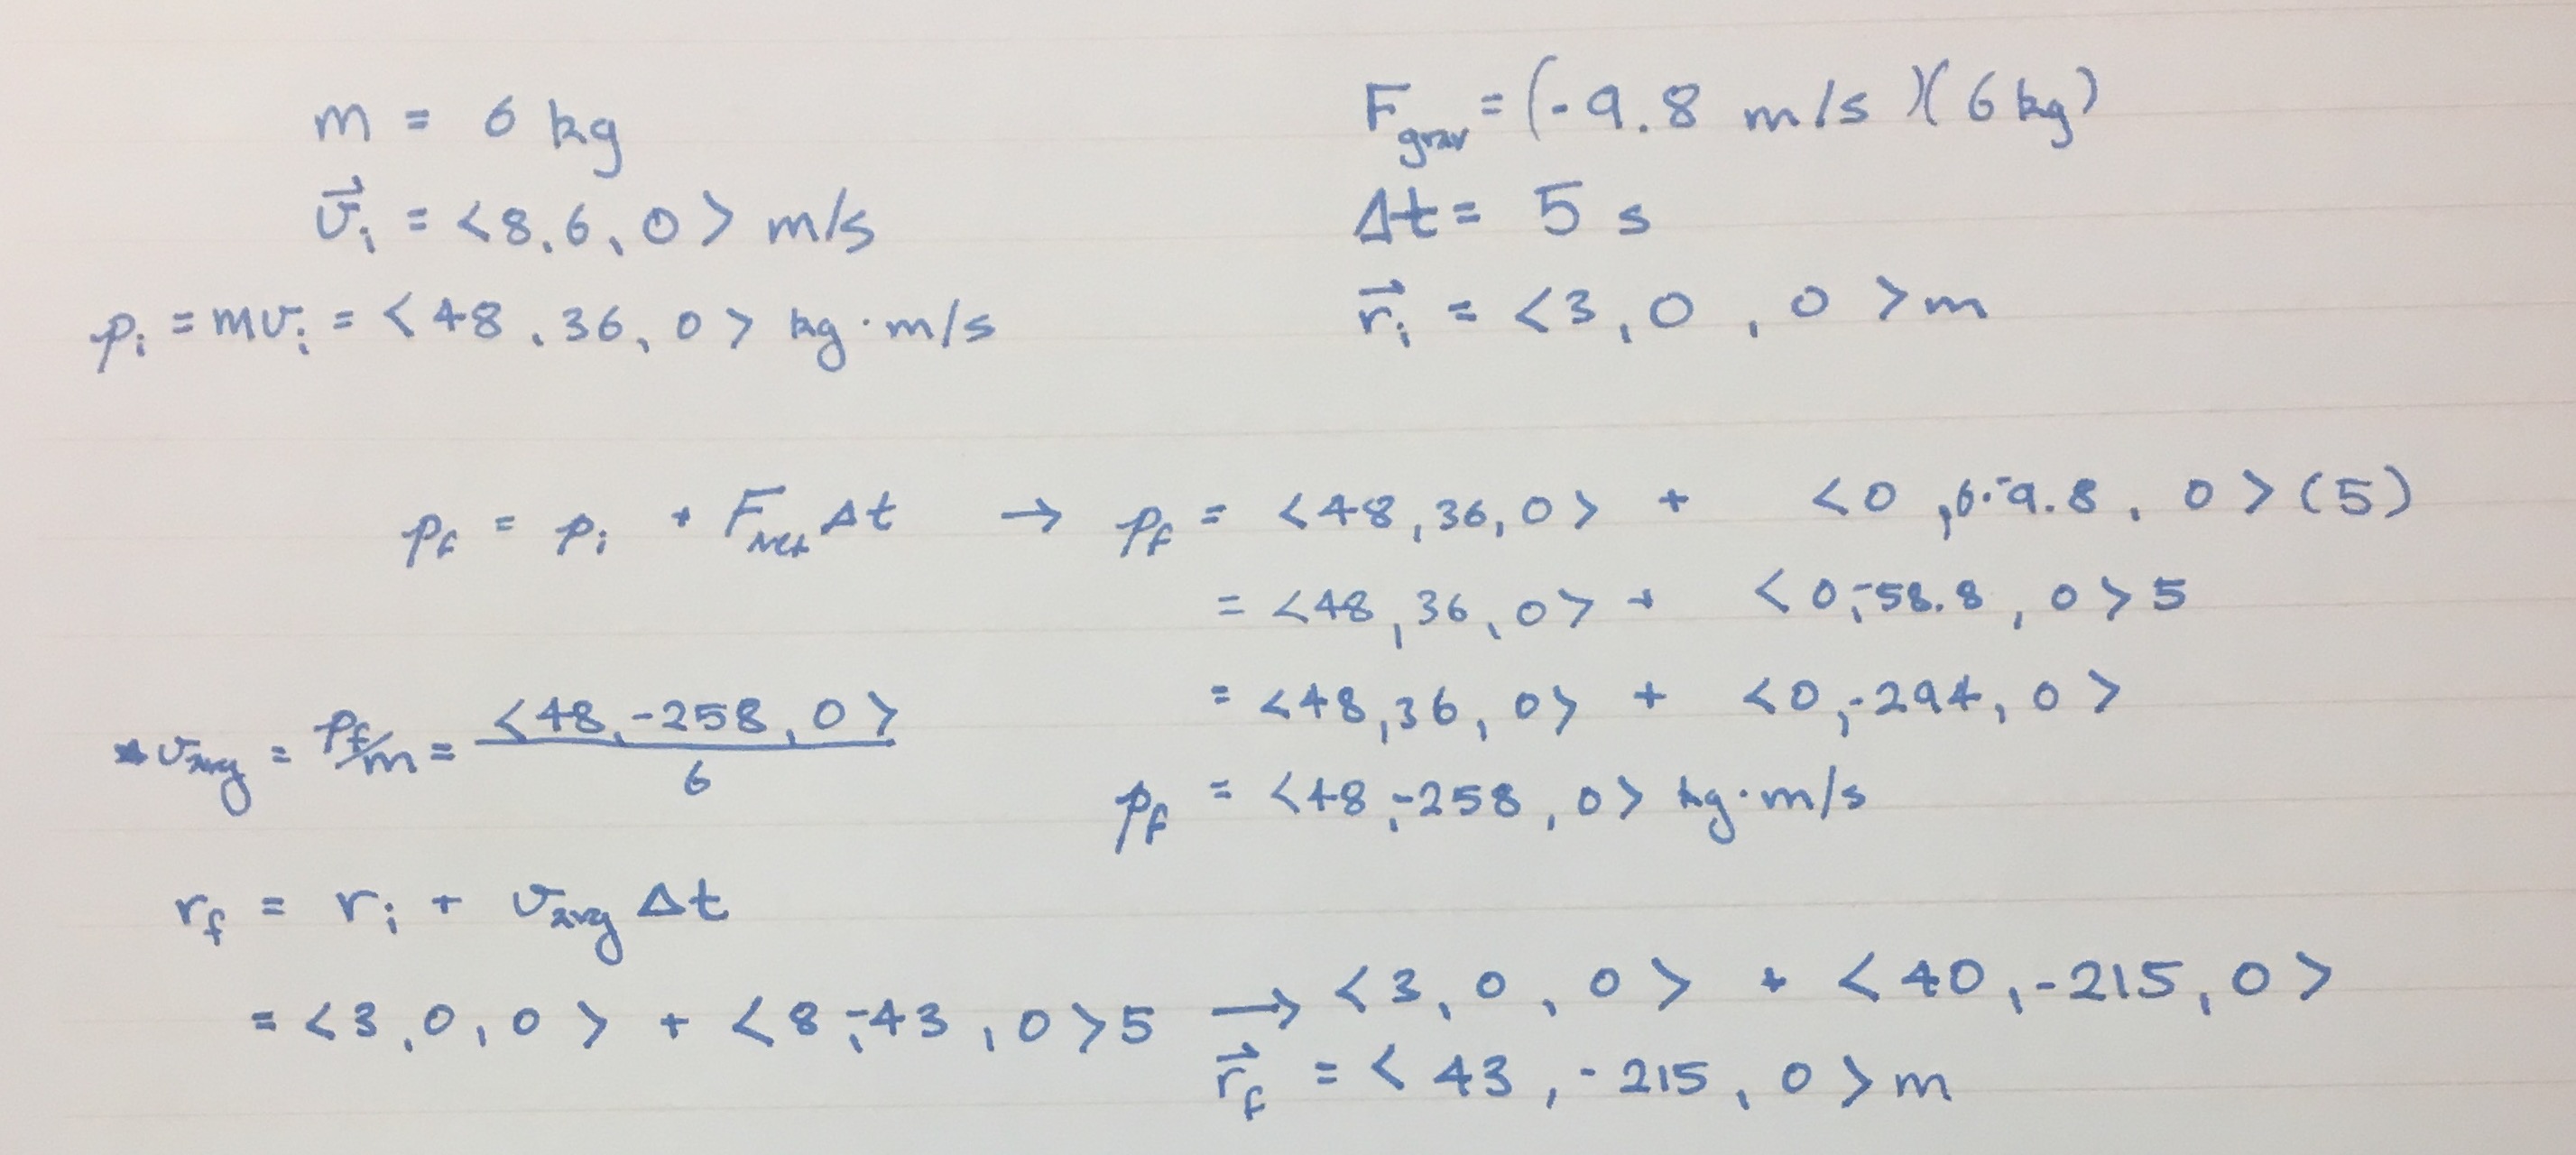 m = 6 kg
v⃗ᵢ = <8, 6, 0> m/s
pᵢ = mvᵢ = <48, 36, 0> kg·m/s
F_grav = (-9.8 m/s)(6 kg)
Δt = 5 s
r⃗ᵢ = <3, 0, 0> m
p_f = pᵢ + F_net Δt → p_f = <48, 36, 0> + <0, 6·-9.8, 0> (5)
= <48, 36, 0> + <0, -58.8, 0> 5
= <48, 36, 0> + <0, -294, 0>
p_f = <48, -258, 0> kg·m/s
*v_avg = p_f/m = <48, -258, 0> / 6
r_f = rᵢ + v_avg Δt
= <3, 0, 0> + <8, -43, 0> 5 → <3, 0, 0> + <40, -215, 0>
r⃗_f = <43, -215, 0> m